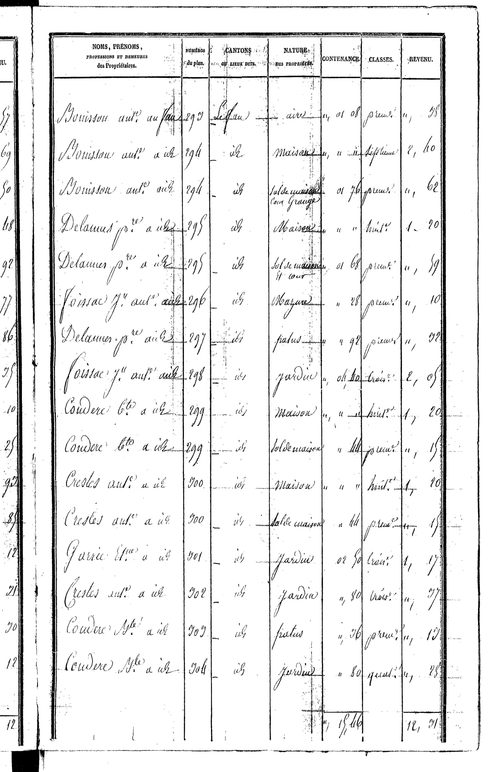 NOMS, PRÉNOMS, PROFESSIONS ET DEMEURES des Propriétaires. NUMÉROS du plan. CANTONS OU LIEUX DITS. NATURE DES PROPRIÉTÉS. CONTENANCE. CLASSES. REVENU.
Bouisson ant.e au fau 293 Le fau aire „ 01 08 prem.e „ 38
Bouisson ant.e a id 294 id maison „ „ „ septieme 2, 40
Bouisson ant.e a id 294 id sol de maison Cour Grange 01 76 prem.e „ 62
Delannes p.re a id 295 id Maison „ „ „ huit.e 1 20
Delannes p.re a id 295 id sol de maison et cour 01 68 prem.e „ 59
Foissac J.n ant.e a id 296 id Mazure „ 28 prem.e „ 10
Delannes p.re a id 297 id patus „ 92 prem.e „ 32
Foissac J.n ant.e a id 298 id jardin „ 04, 40 trois.e 2, 05
Coudere a id 299 id maison „ „ „ huit.e 1, 20
Coudere a id 299 id sol de maison „ 44 prem.e „ 15
Crestes ant.e a id 300 id maison „ „ „ huit.e 1, 20
Crestes ant.e a id 300 id sol de maison „ 44 prem.e „ 15
Garric a id 301 id jardin 02 50 trois.e 1, 17
Crestes ant.e a id 302 id jardin „, 80 trois.e „, 37
Coudere a id 303 id patus „, 36 prem.e „, 13
Coudere a id 304 id jardin „ 80 quat.e „, 28
„, 15, 46 12, 31